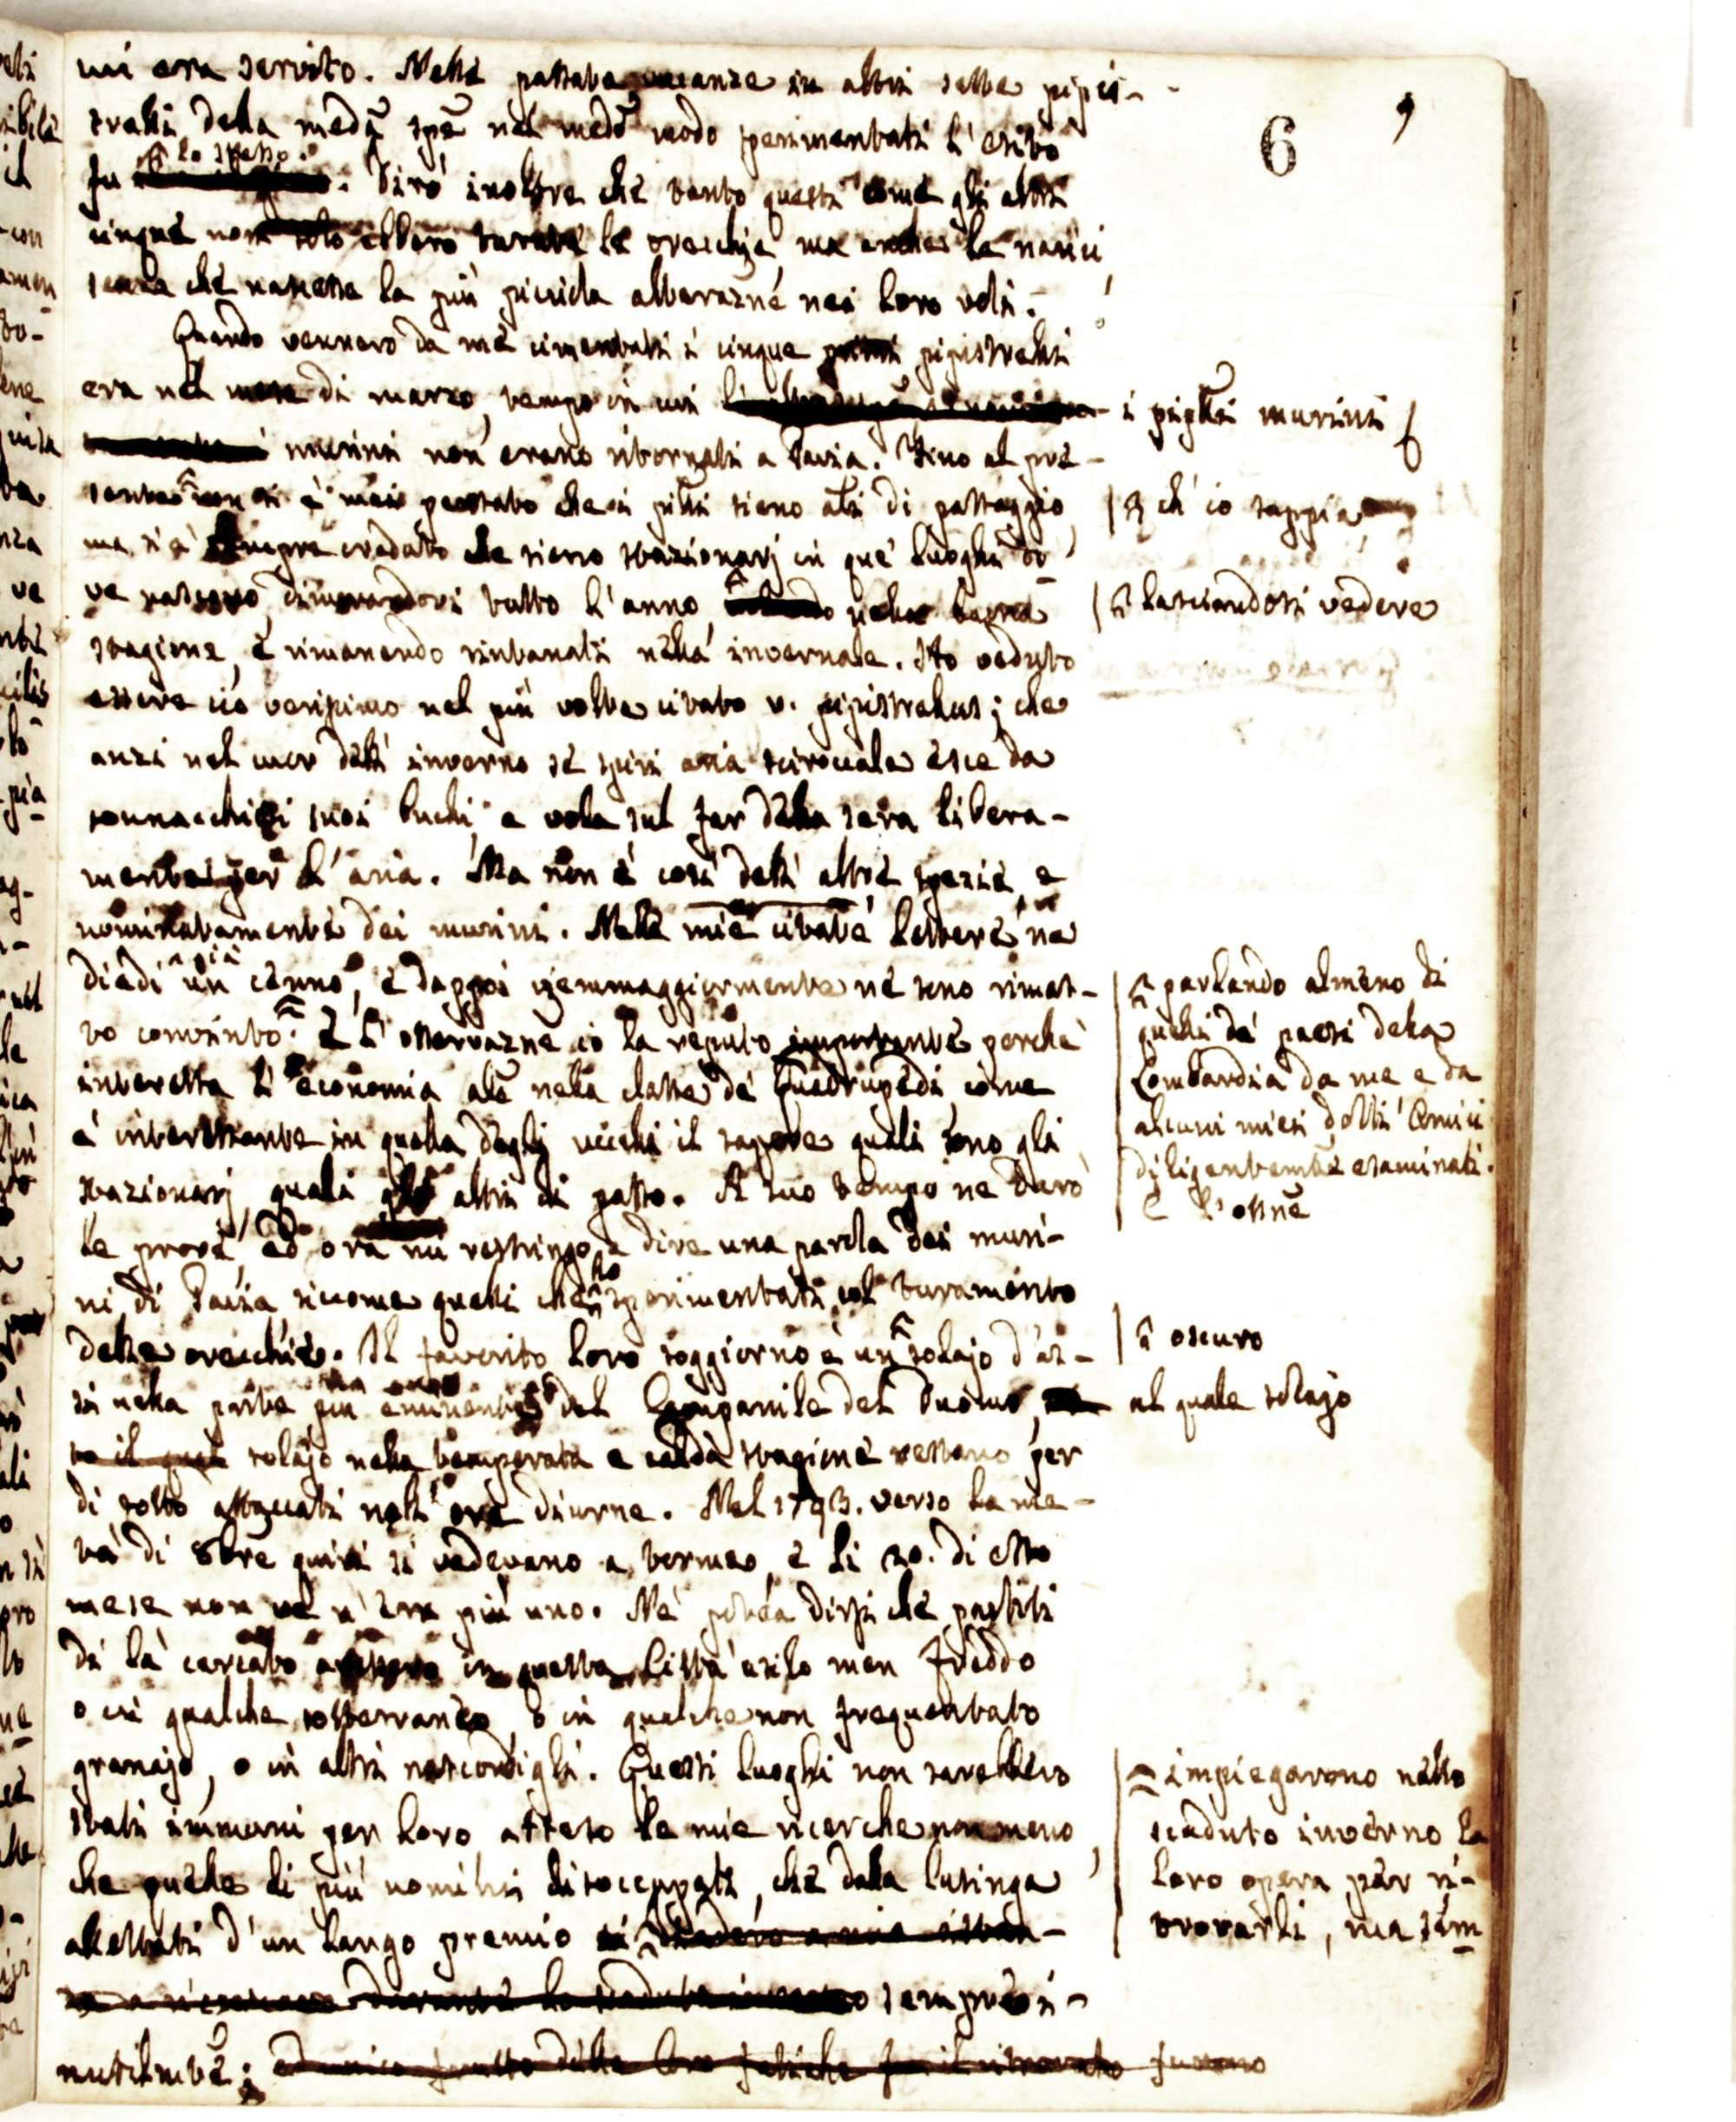 mi era servito. Nelle passate vacanze in altri sette pipis-
trelli della meda spe nel medo modo sperimentati l'esito
fu lo stesso. Dirò inoltre che tanto questi come gli altri
cinque non solo ebbero turate le orecchie, ma anche le narici,
senza che nascesse la più piccola alterazne nei loro voli.
Quando vennero da me cimentati i cinque primi pipistrelli
era nel mese di marzo, tempo in cui i piplli murini
murini non erano ritornati a Pavia. Fino al pre-
sente non si è mai pensato che i pplli sieno ali di passaggio,
ch'io sappia
ma si è sempre creduto che sieno stazionarj in que' luoghi do-
ve nascono, dimorandovi tutto l'anno, nella buona
lasciandosi vedere
stagione, e rimanendo rintanati nella invernale. Ho veduto
essere ciò verissimo nel più volte citato v. pipistrellus; che
anzi nel cuor dell'inverno se spiri aria sciroccale esce da
sonnacchiosi suoi buchi, e vola sul far della sera libera-
mente per l'aria. Ma non è così dell'altre spezie, e
nominatamente dei murini. Nelle mie citate lettere ne
diedi già un cenno, e dappoi viemmaggiormente ne sono rimas-
to convinto. E l'osservazne io la reputo importante perchè
parlando almeno di
quelli de' paesi della
Lombardia da me e da
alcuni miei dotti Amici
diligentemte esaminati.
E l'ossne
interessa l'economia ale nella classe de' Quadrupedi, come
è interessante in quella degli uccelli il sapere quali sono gli
stazionarj, quali gli altri di passo. A suo tempo ne darò
le prove, ed ora mi restringo a dire una parola dei muri-
ni di Pavia siccome quelli che ho sperimentati col turamento
delle orecchie. Il favorito loro soggiorno è un solajo d'as-
oscuro
si nella parte più eminente del Campanile del Duomo,
al quale solajo
to il qual solajo nella temperata e calda stagione restano per
di sotto attaccati nell'ore diurne. Nel 1793. verso la me-
tà di 8bre quivi si vedevano a torme, e li 20. di esso
mese non ve n'era più uno. Nè potea dirsi che partiti
di là cercato avessero in questa Città asilo men freddo
o in qualche sotterraneo, o in qualche non frequentato
granajo, o in altri nascondigli. Questi luoghi non sarebbero
stati immuni per loro atteso le mie ricerche non meno,
che quelle di più uomini disoccupati, che dalla lusinga
allettati d'un largo premio
impiegarono nello
scaduto inverno la
loro opera per ri-
trovarli, ma sem
durante lo scaduto inverno sempre i-
nutilmte; ed unico frutto delle loro fatiche fu il ritrovato furono
6